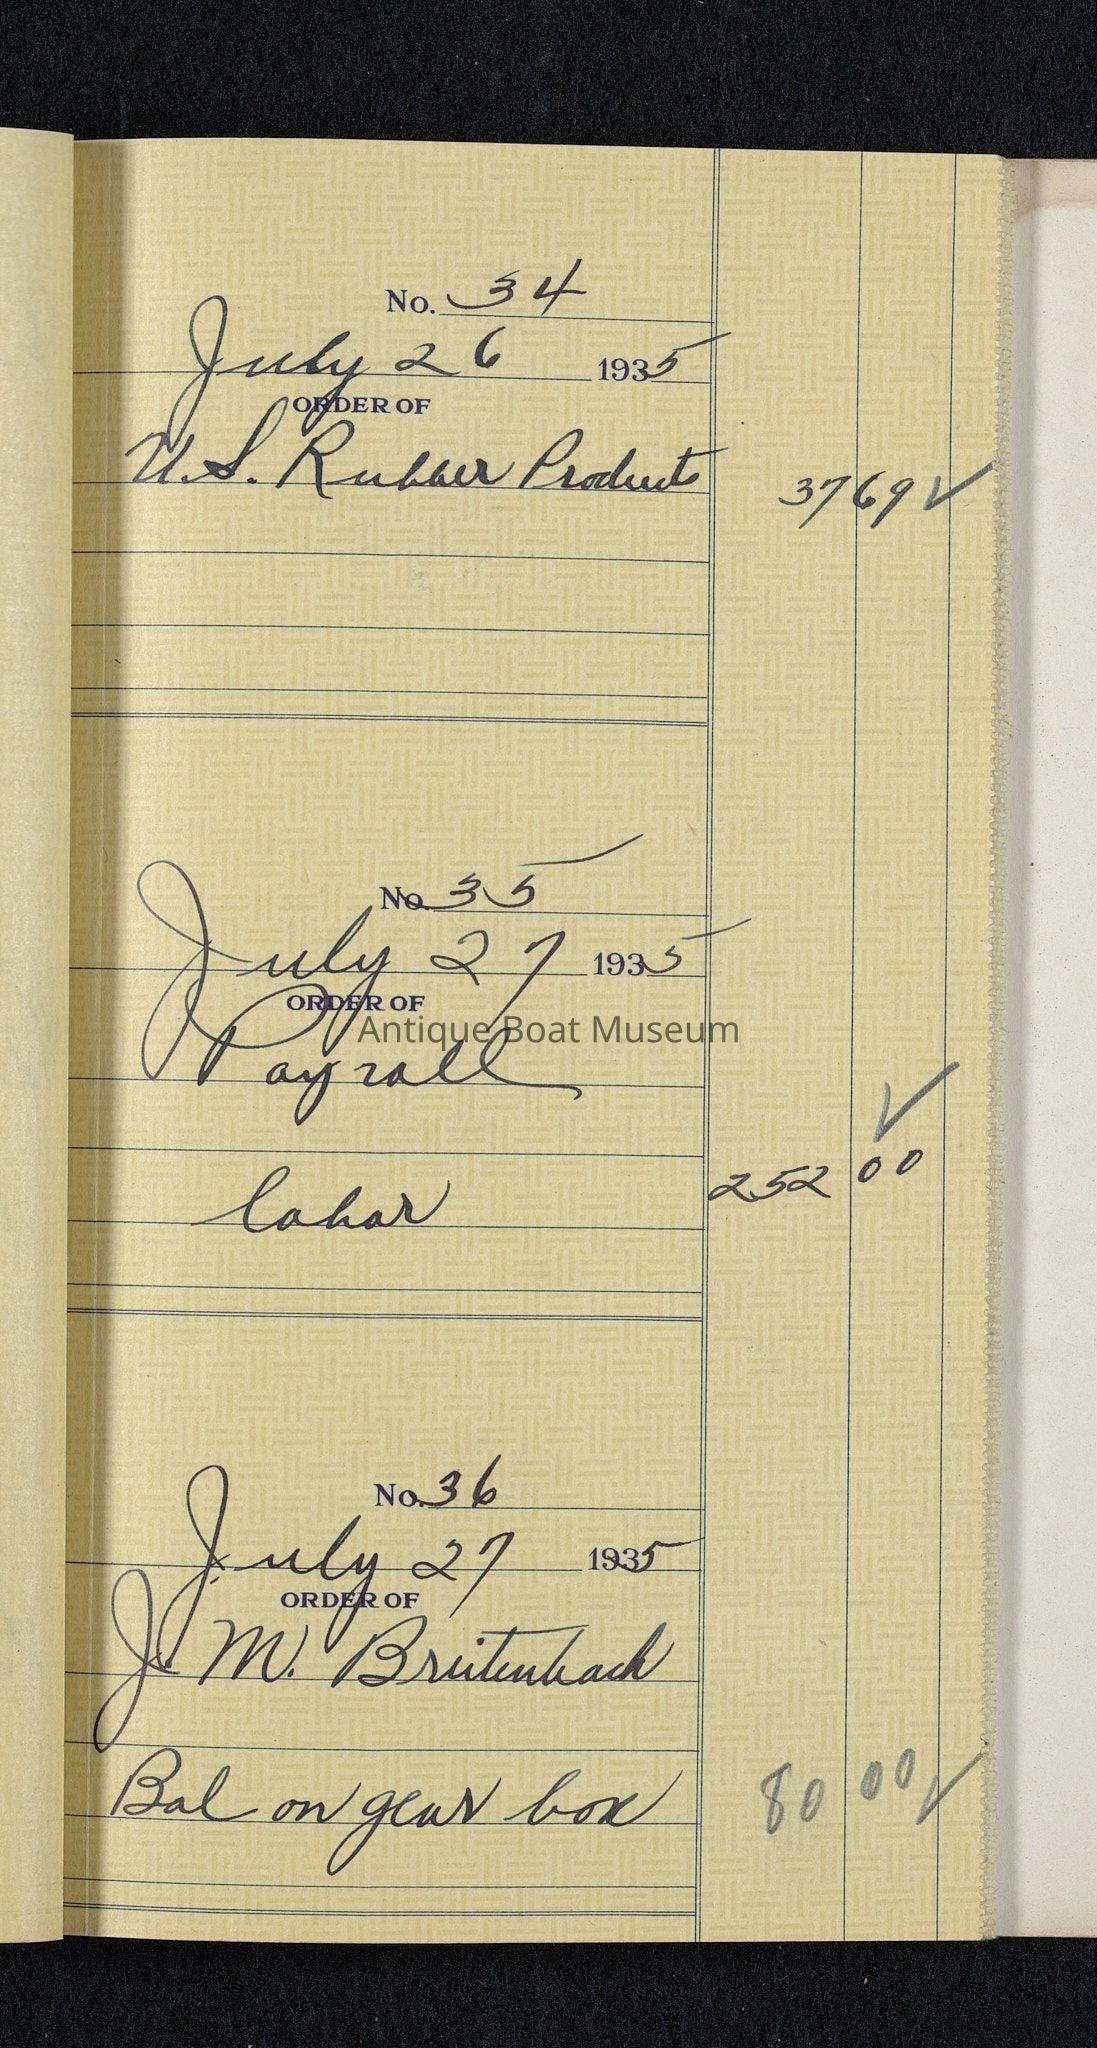 No. 34
July 26 1935
ORDER OF
U.S. Rubber Products 37 69 ✓
No. 35
July 27 1935
ORDER OF
Antique Boat Museum
Payroll
✓
labor 252 00
No. 36
July 27 1935
ORDER OF
J. M. Breitenbach
Bal on gear box 80 00 ✓